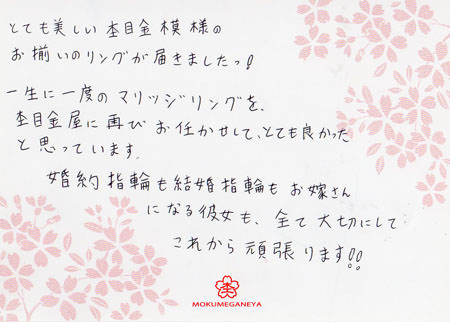 とても美しい杢目金模様の
お揃いのリングが届きましたっ!
一生に一度のマリッジリングを、
杢目金屋に再びお任せして、とても良かった
と思っています。
婚約指輪も結婚指輪もお嫁さん
になる彼女も、全て大切にして
これから頑張ります!!
杢
MOKUMEGANEYA